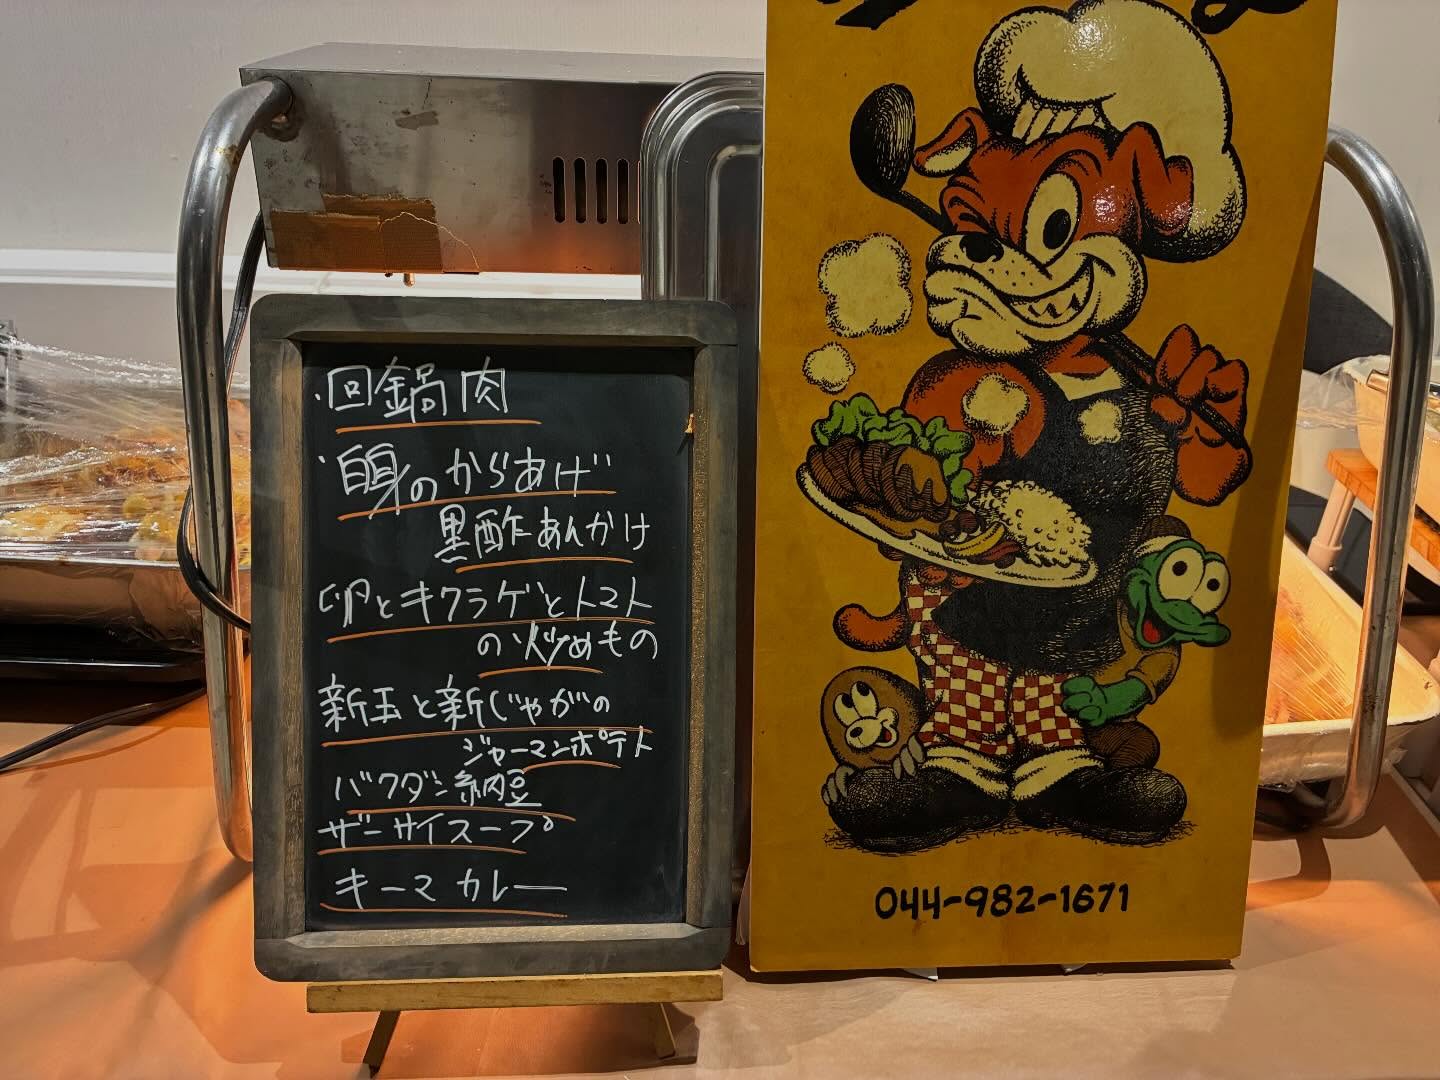 ・回鍋肉
・白身のからあげ
黒酢あんかけ
卵とキクラゲとトマト
の炒めもの
新玉と新じゃがの
ジャーマンポテト
バクダン納豆
ザーサイスープ
キーマカレー
044-982-1671